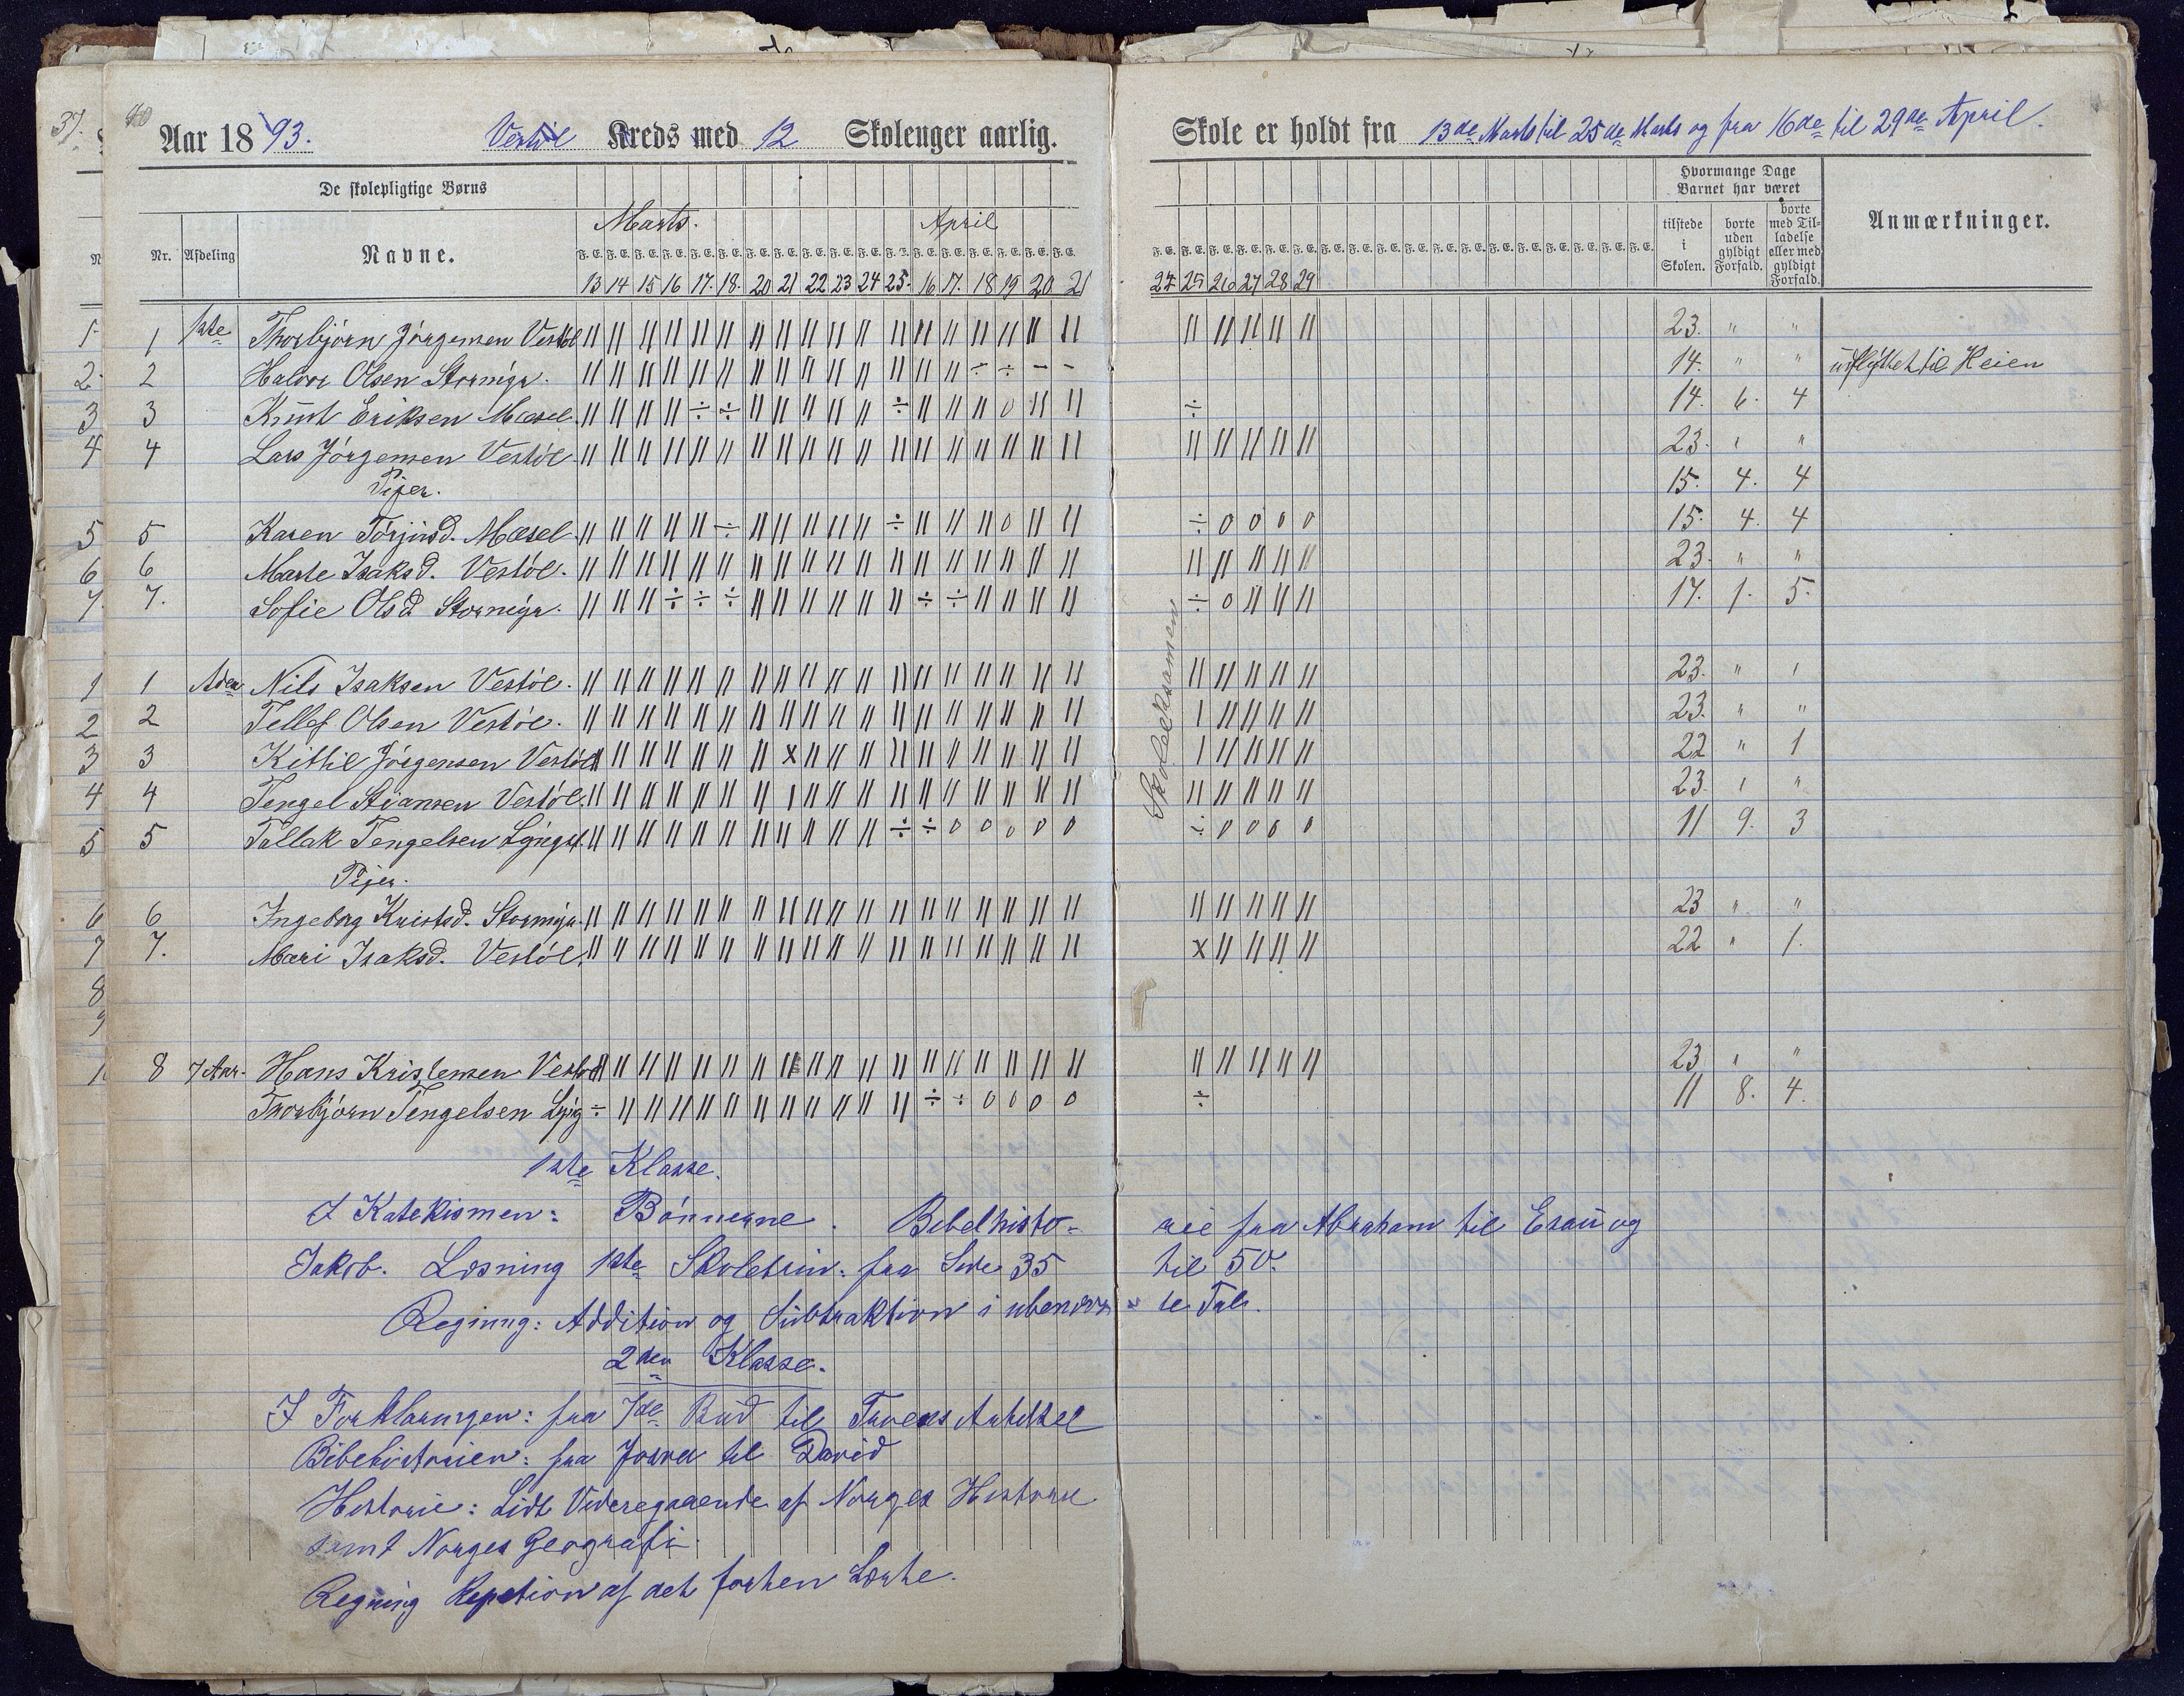 40
Aar 1893. Vestøl Kreds med 12 Skoleuger aarlig. Skole er holdt fra 13de Marts til 25de Marts og fra 16de til 29de April.
De skolepligtige Børns
Hvormange Dage Barnet har været
Nr. Afdeling Navne. Marts. April
tilstede i Skolen. borte uden gyldigt Forfald. borte med Tilladelse eller med gyldigt Forfald. Anmærkninger.
F. E. F. E. F. E. F. E. F. E. F. E. F. E. F. E. F. E. F. E. F. E. F. E. F. E. F. E. F. E. F. E. F. E. F. E.
13 14 15 16 17. 18. 20 21 22 23 24 25. 16 17. 18 19 20 21 24 25 26 27 28 29
1 1ste Thorbjørn Jørgensen Vestøl 23. " "
2 Halvor Olsen Stormyr. 14. " " udflyttet til Heien
3 Knut Eriksen Mæsel. 14. 6. 4
4 Lars Jørgensen Vestøl 23. " "
Piger. 15. 4. 4
5 Karen Torjusd. Mæsel 15. 4. 4
6 Marte Isaksd. Vestøl. 23. " "
7. Sofie Olsd Stormyr. 17. 1. 5.
Skoleeksamen
1 Aden Nils Isaksen Vestøl. 23. " "
2 Tellef Olsen Vestøl. 23. " "
3 Kittil Jørgensen Vestøl 22 " 1
4 Tengel Stiansen Vestøl. 23. " "
5 Tallak Tengelsen 11 9. 3
Piger.
6 Ingeborg Kristsd. Stormyr. 23 " "
7. Mari Isaksd. Vestøl. 22 " 1.
8 7 Aar. Hans Kristensen Vestøl 23 " "
Thorbjørn Tengelsen 11 8. 4.
1ste Klasse.
I Katekismen: Bønnerne. Bibelhisto= rie fra Abraham til Esau og
Jakob. Læsning 1ste Skoletrin: fra Side 35 til 50.
Regning: Addition og Subtraktion i ubenævn= te Tal.
2den Klasse.
I Forklaringen: fra 7de Bud til Troens Artikkel
Bibelhistorien: fra Josva til David
Historie: Lidt Videregaaende af Norges Historie
samt Norges Geografi.
Regning Repetion af det forhen Lærte.